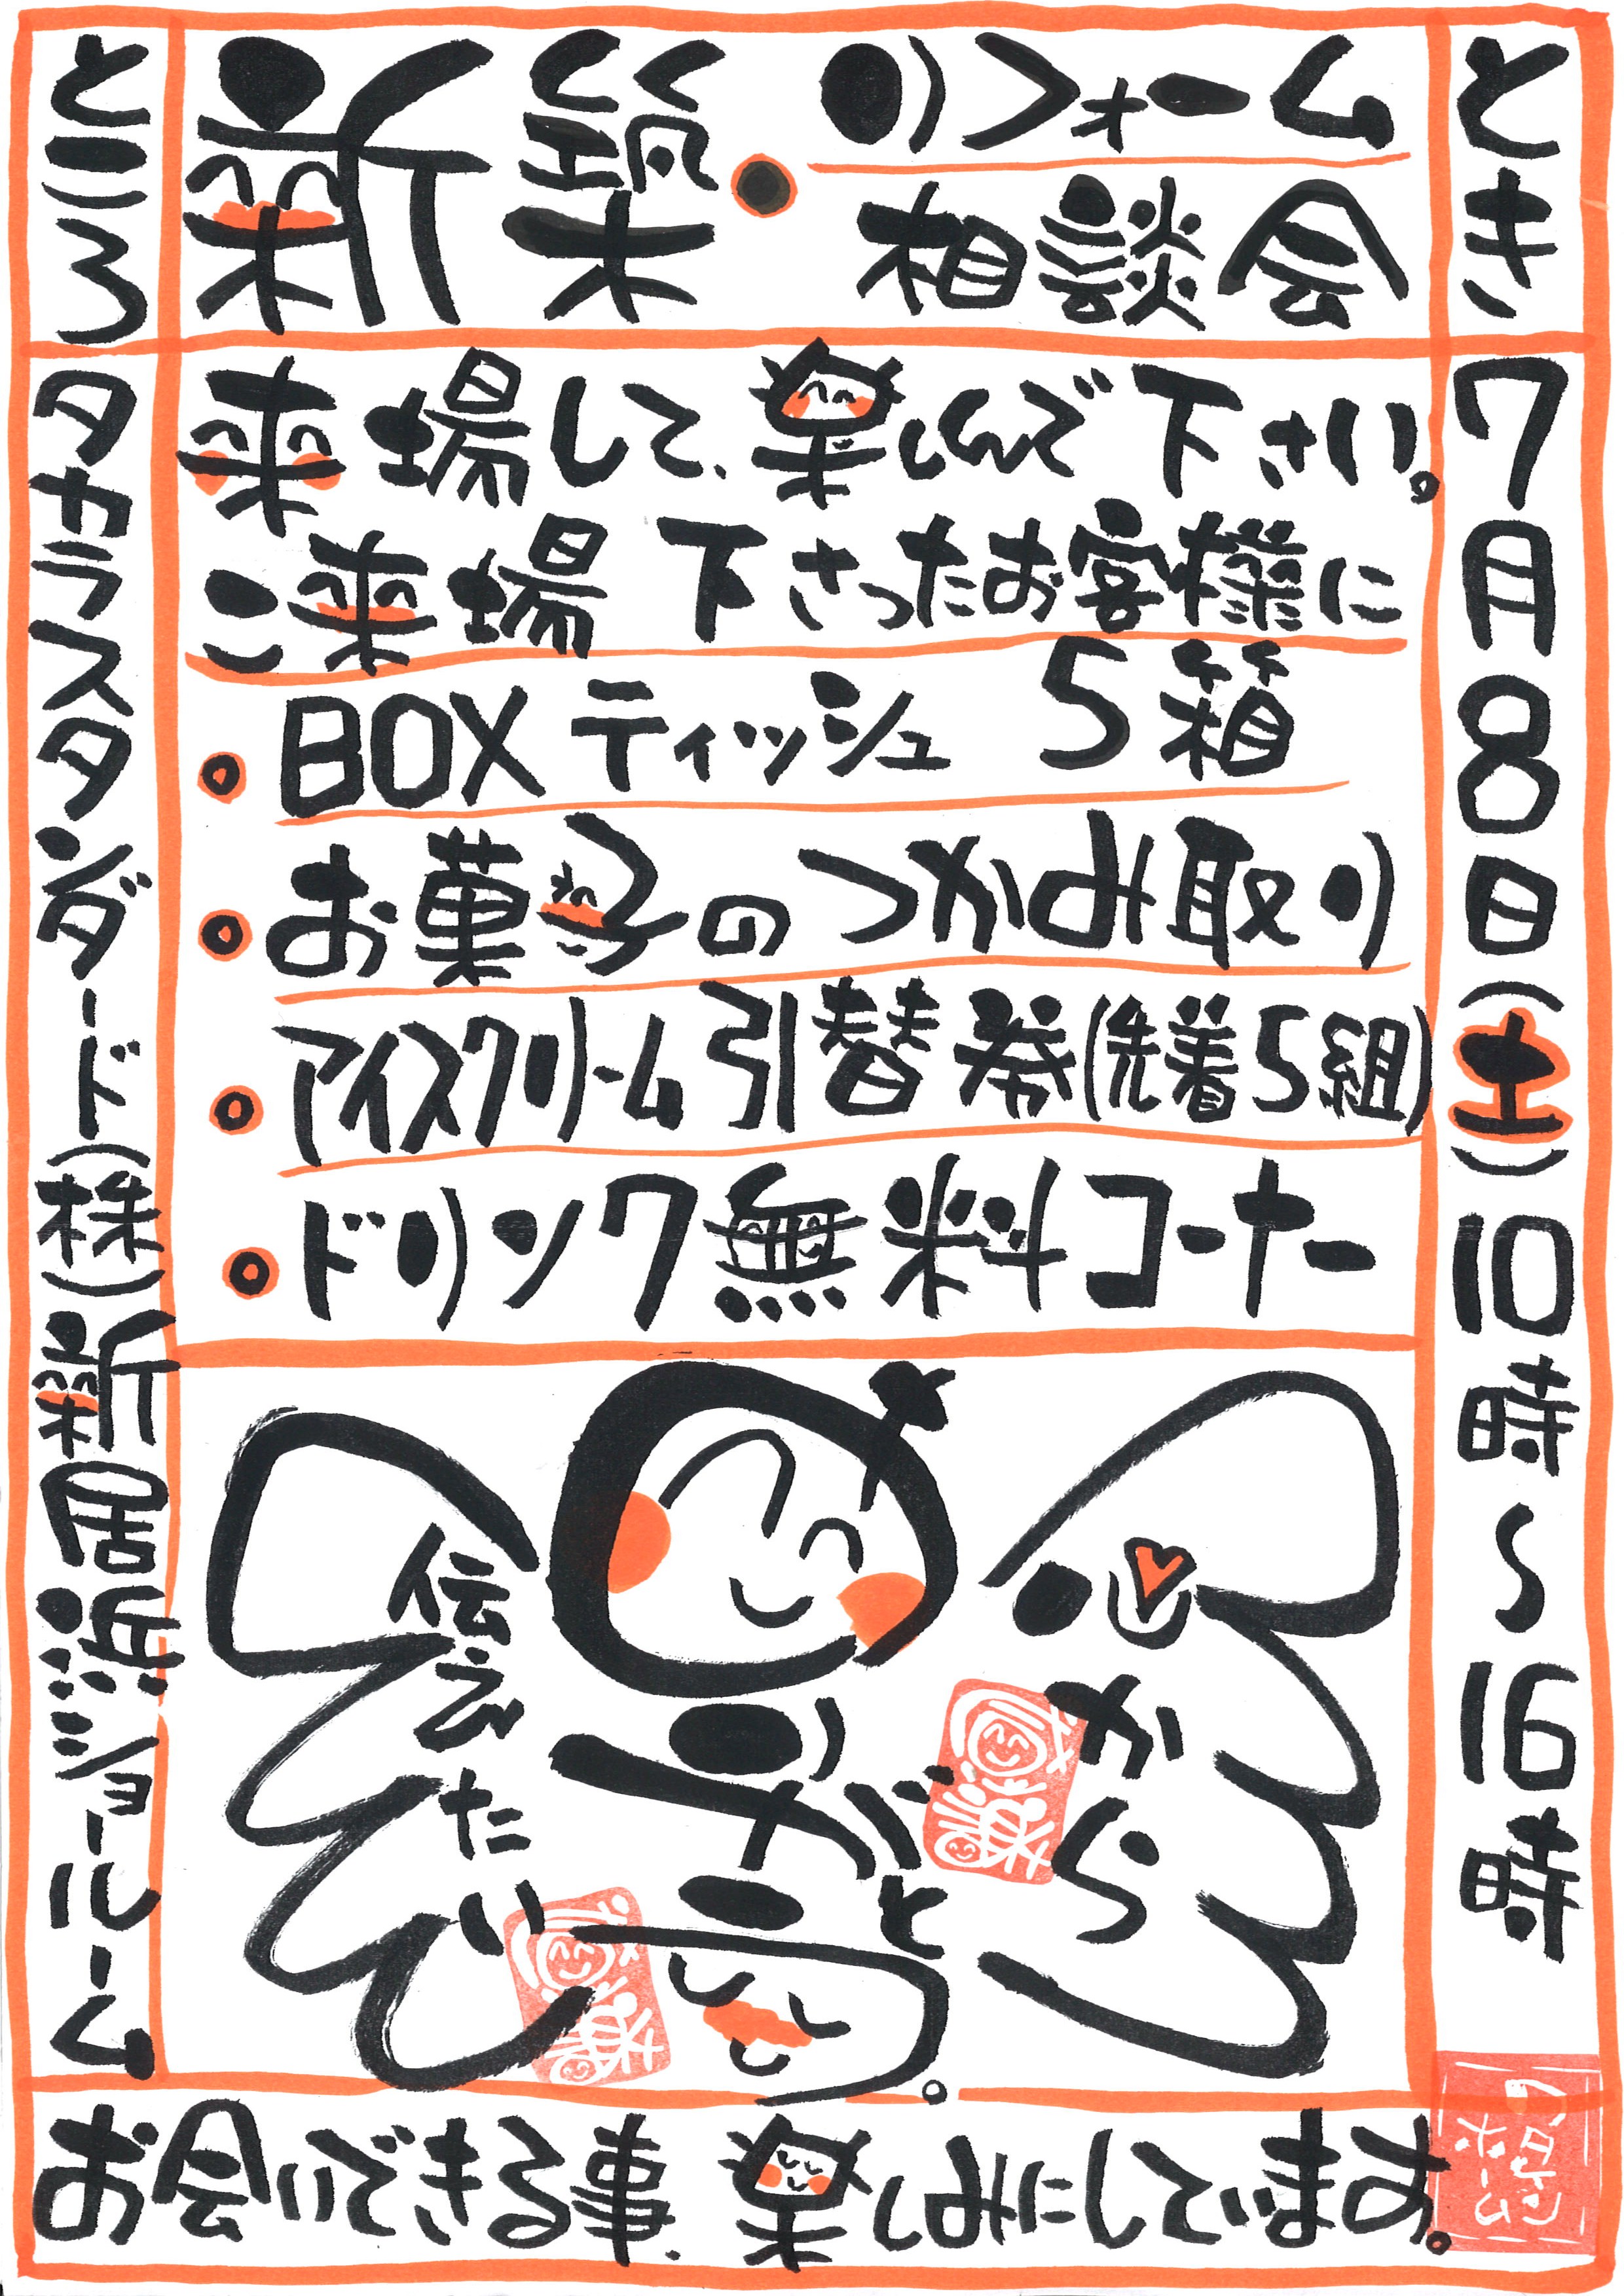 新築・リフォーム
相談会
とき
7月8日(土)10時～16時
ところ
タカラスタンダード(株)新居浜ショールーム
来場して、楽しんで下さい。
ご来場下さったお客様に
BOXティッシュ 5箱
お菓子のつかみ取り
アイスクリーム引替券(先着5組)
ドリンク無料コーナー
心から
ありがとう。
伝えたい
お会いできる事、楽しみにしています。